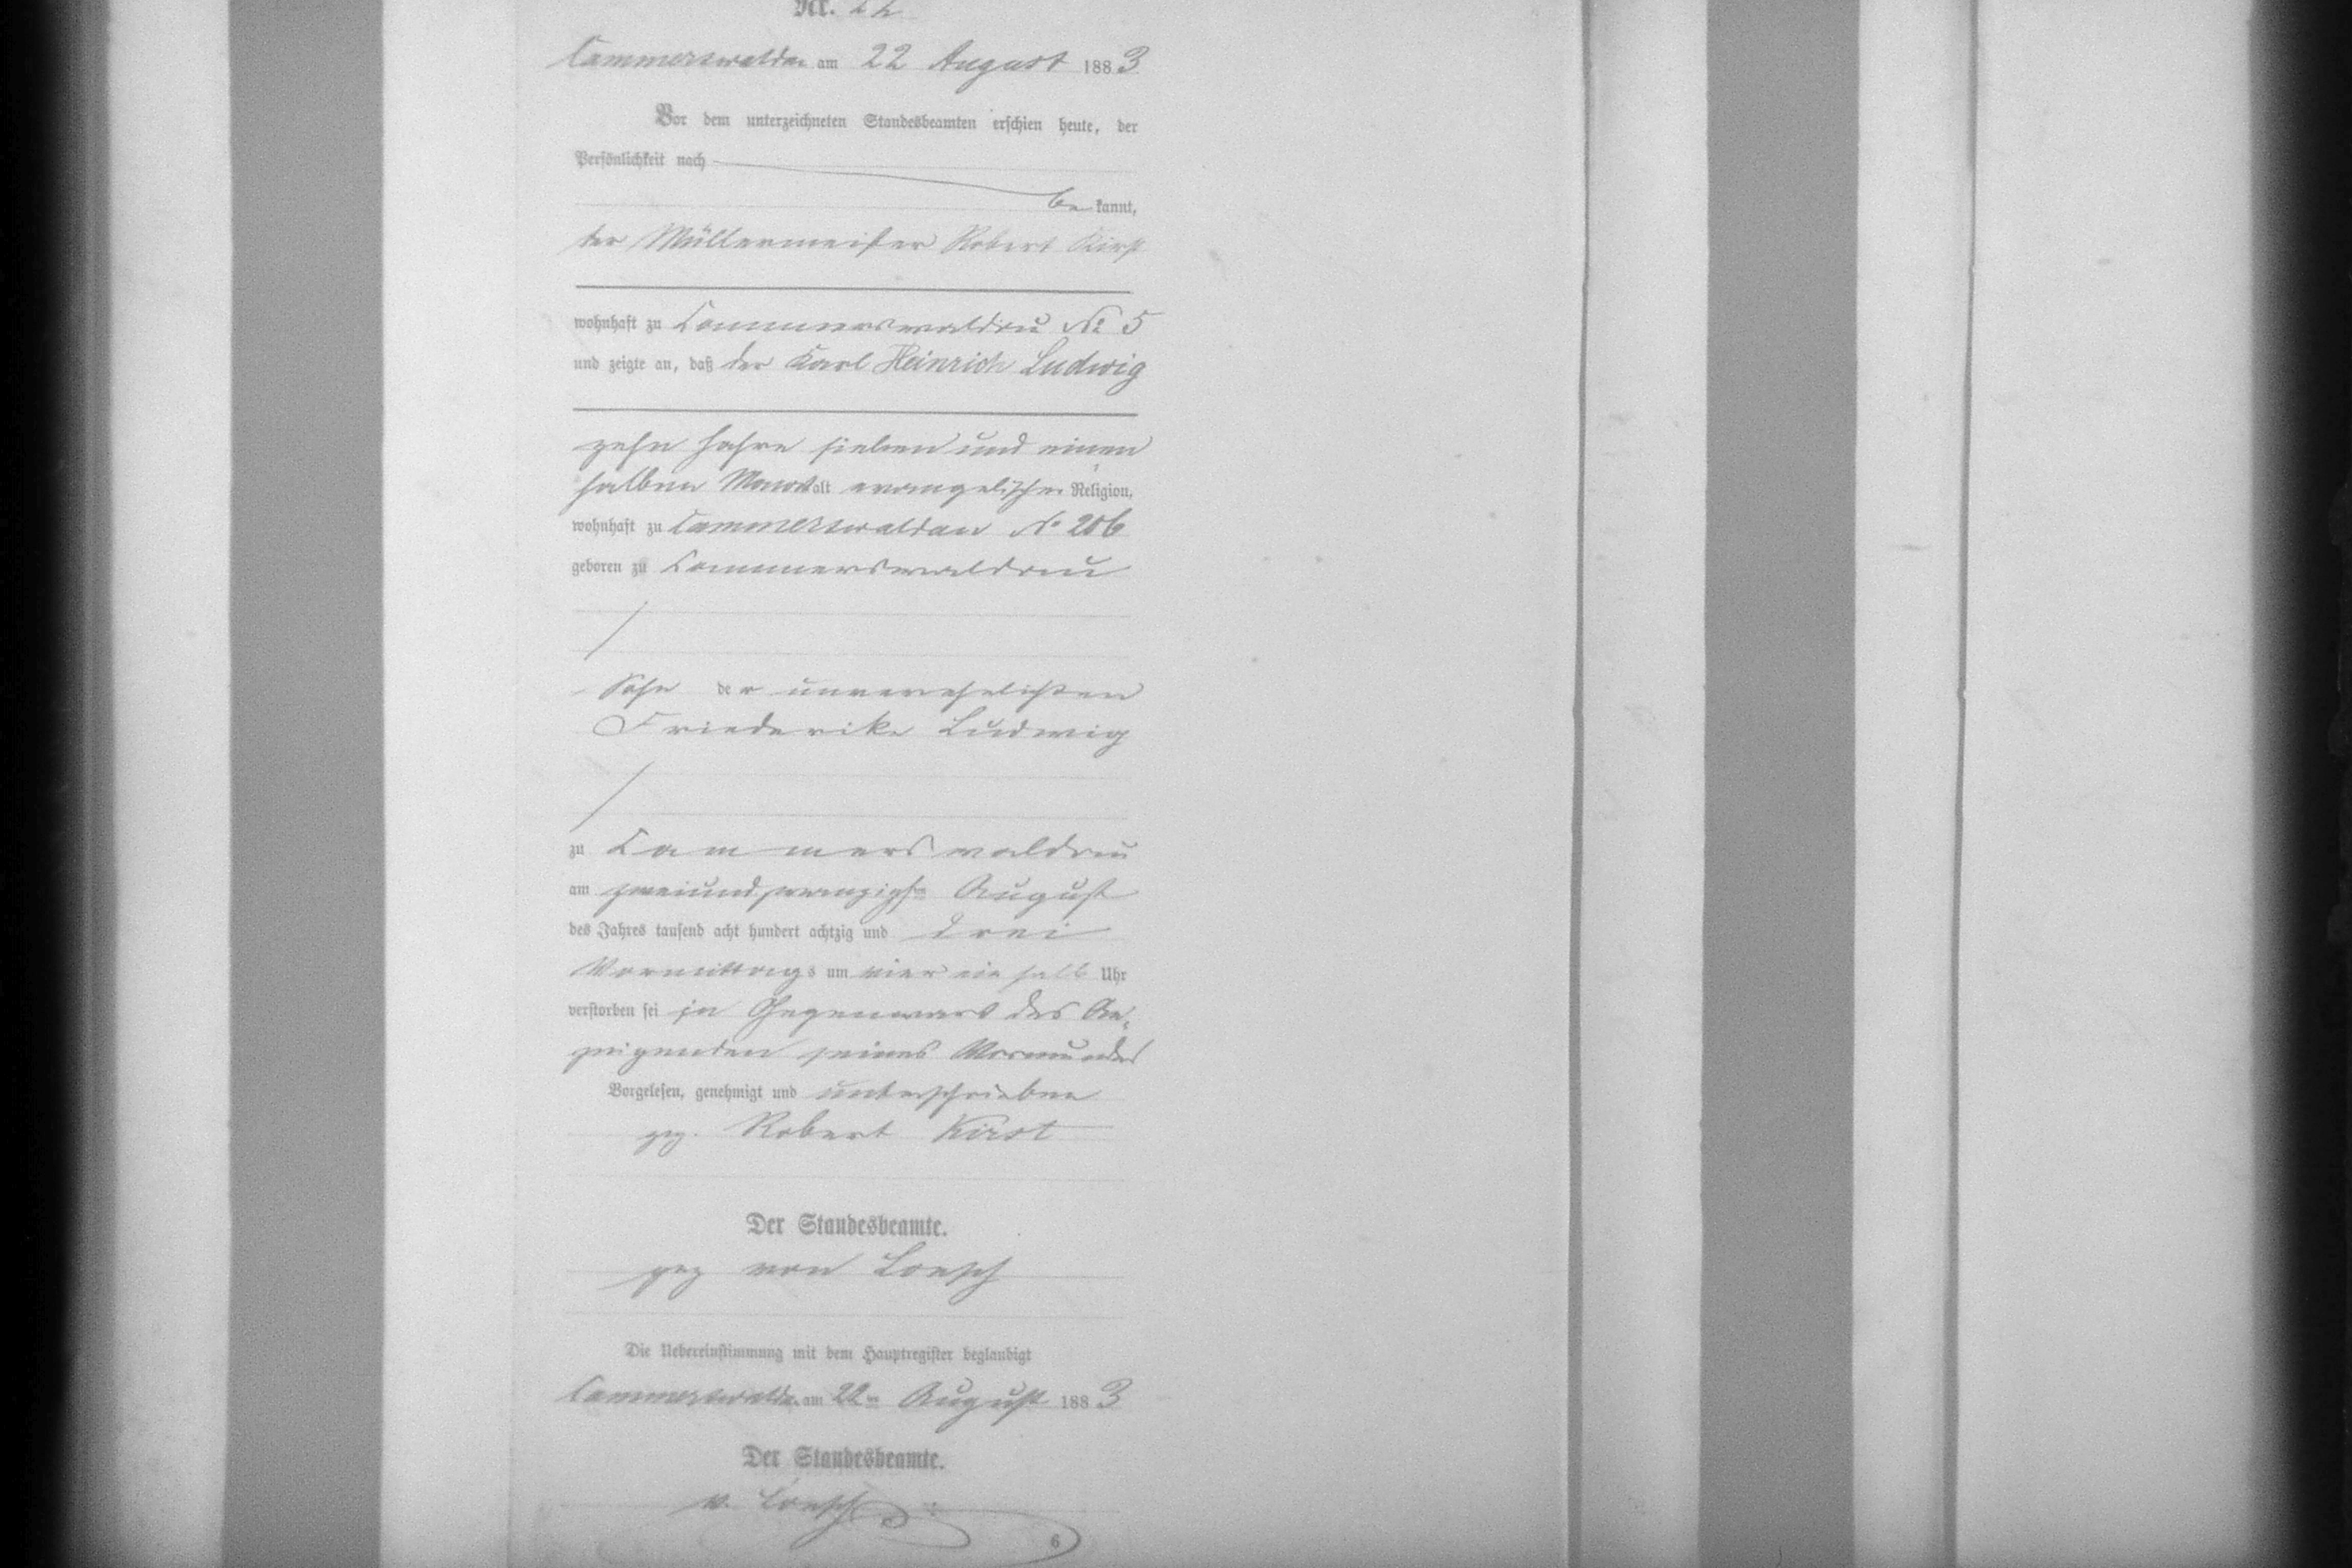 Nr.
Cammerswaldau am 22 August 1883
Vor dem unterzeichneten Standesbeamten erschien heute, der
Persönlichkeit nach
be kannt,
der Müllermeister Robert Kirst
wohnhaft zu Cammerswaldau № 5
und zeigte an, daß der Karl Heinrich Ludwig
zehn Jahre sieben und einen
halben Monat alt evangelischer Religion,
wohnhaft zu Cammerswaldau № 206
geboren zu Cammerswaldau
Sohn der unverehelichten
Friederike Ludwig
zu Cammerswaldau
am zweiundzwanzigsten August
des Jahres tausend acht hundert achtzig und drei
Vormittags um vier ein halb Uhr
verstorben sei in Gegenwart des An-
zeigenden seines Vormundes
Vorgelesen, genehmigt und unterschrieben
gez. Robert Kirst
Der Standesbeamte.
gez von Loesch
Die Uebereinstimmung mit dem Hauptregister beglaubigt
Cammerswaldau am 22ten August 1883
Der Standesbeamte.
v. Loesch
6